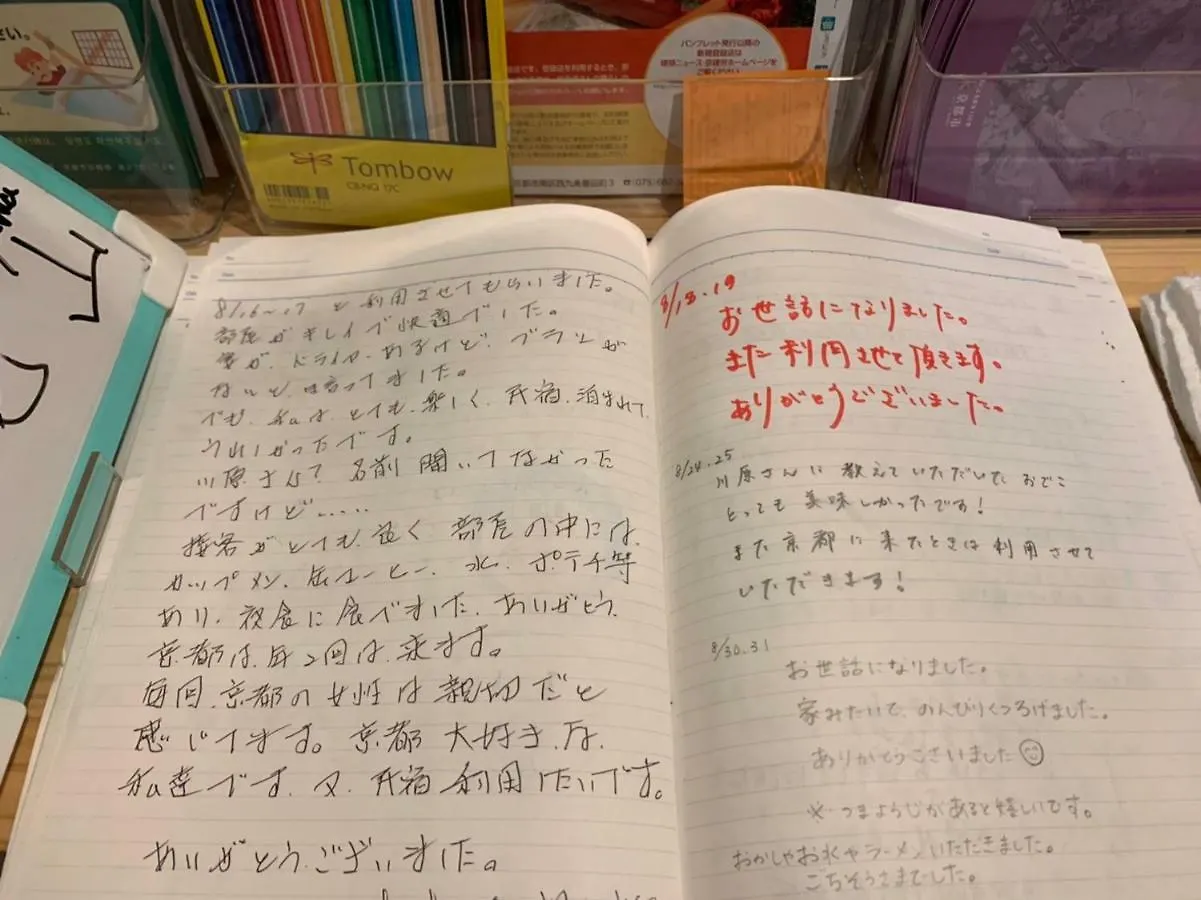 さい。
Tombow
CB-NQ 17C
パンフレット発行以降の
新規登録店は
ホームページを
ご覧ください
8/16~17 と利用させてもらいました。
部屋がキレイで快適でした。
妻が、ドライヤーあるけど、ブラシが
ないと、は言ってました。
でも、私は、とても、楽しく、民宿、泊まれて、
うれしかったです。
川原さん? 名前 聞いてなかった
ですけど……
接客がとても、良く 部屋の中には、
カップメン、缶コーヒー、水、ポテチ等
あり、夜食に食べました、ありがとう、
京都は、年2回は、来ます。
毎回、京都の女性は親切だと
感じてます。京都 大好き、な、
私達です、又、民宿 利用したいです。
ありがとうございました。
8/18.19
お世話になりました。
また利用させて頂きます。
ありがとうございました。
8/24.25
川原さんに教えていただいた おでこ
とっても美味しかったです!
また京都に来たときは利用させて
いただきます!
8/30.31
お世話になりました。
家みたいで、のんびりくつろげました。
ありがとうございました
※つまようじがあると嬉しいです。
おかしやお水やラーメンいただきました。
ごちそうさまでした。